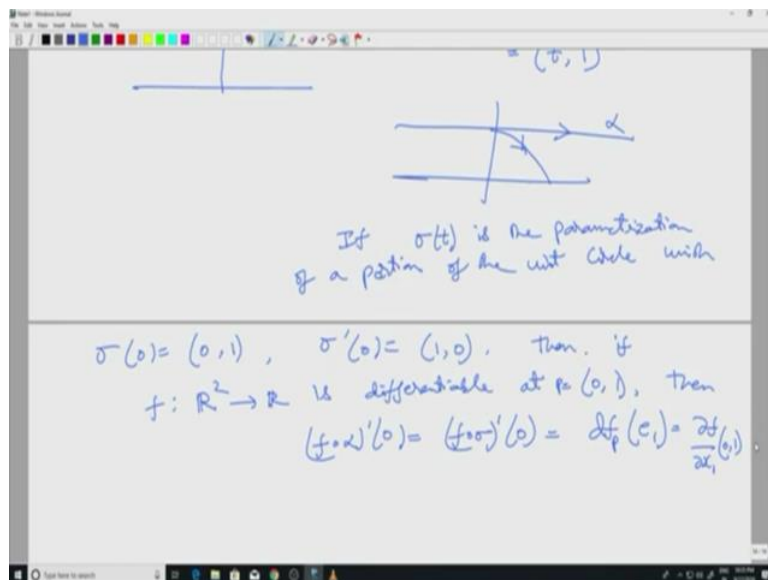 = (t, 1)
α
If σ(t) is the parametization
of a portion of the unit circle with
σ(0) = (0,1), σ'(0) = (1,0). Then. if
f: ℝ² → ℝ is differentiable at p=(0,1), then
(f∘α)'(0) = (f∘σ)'(0) = df_p(e₁) = ∂f/∂x₁ (0,1)
Type here to search